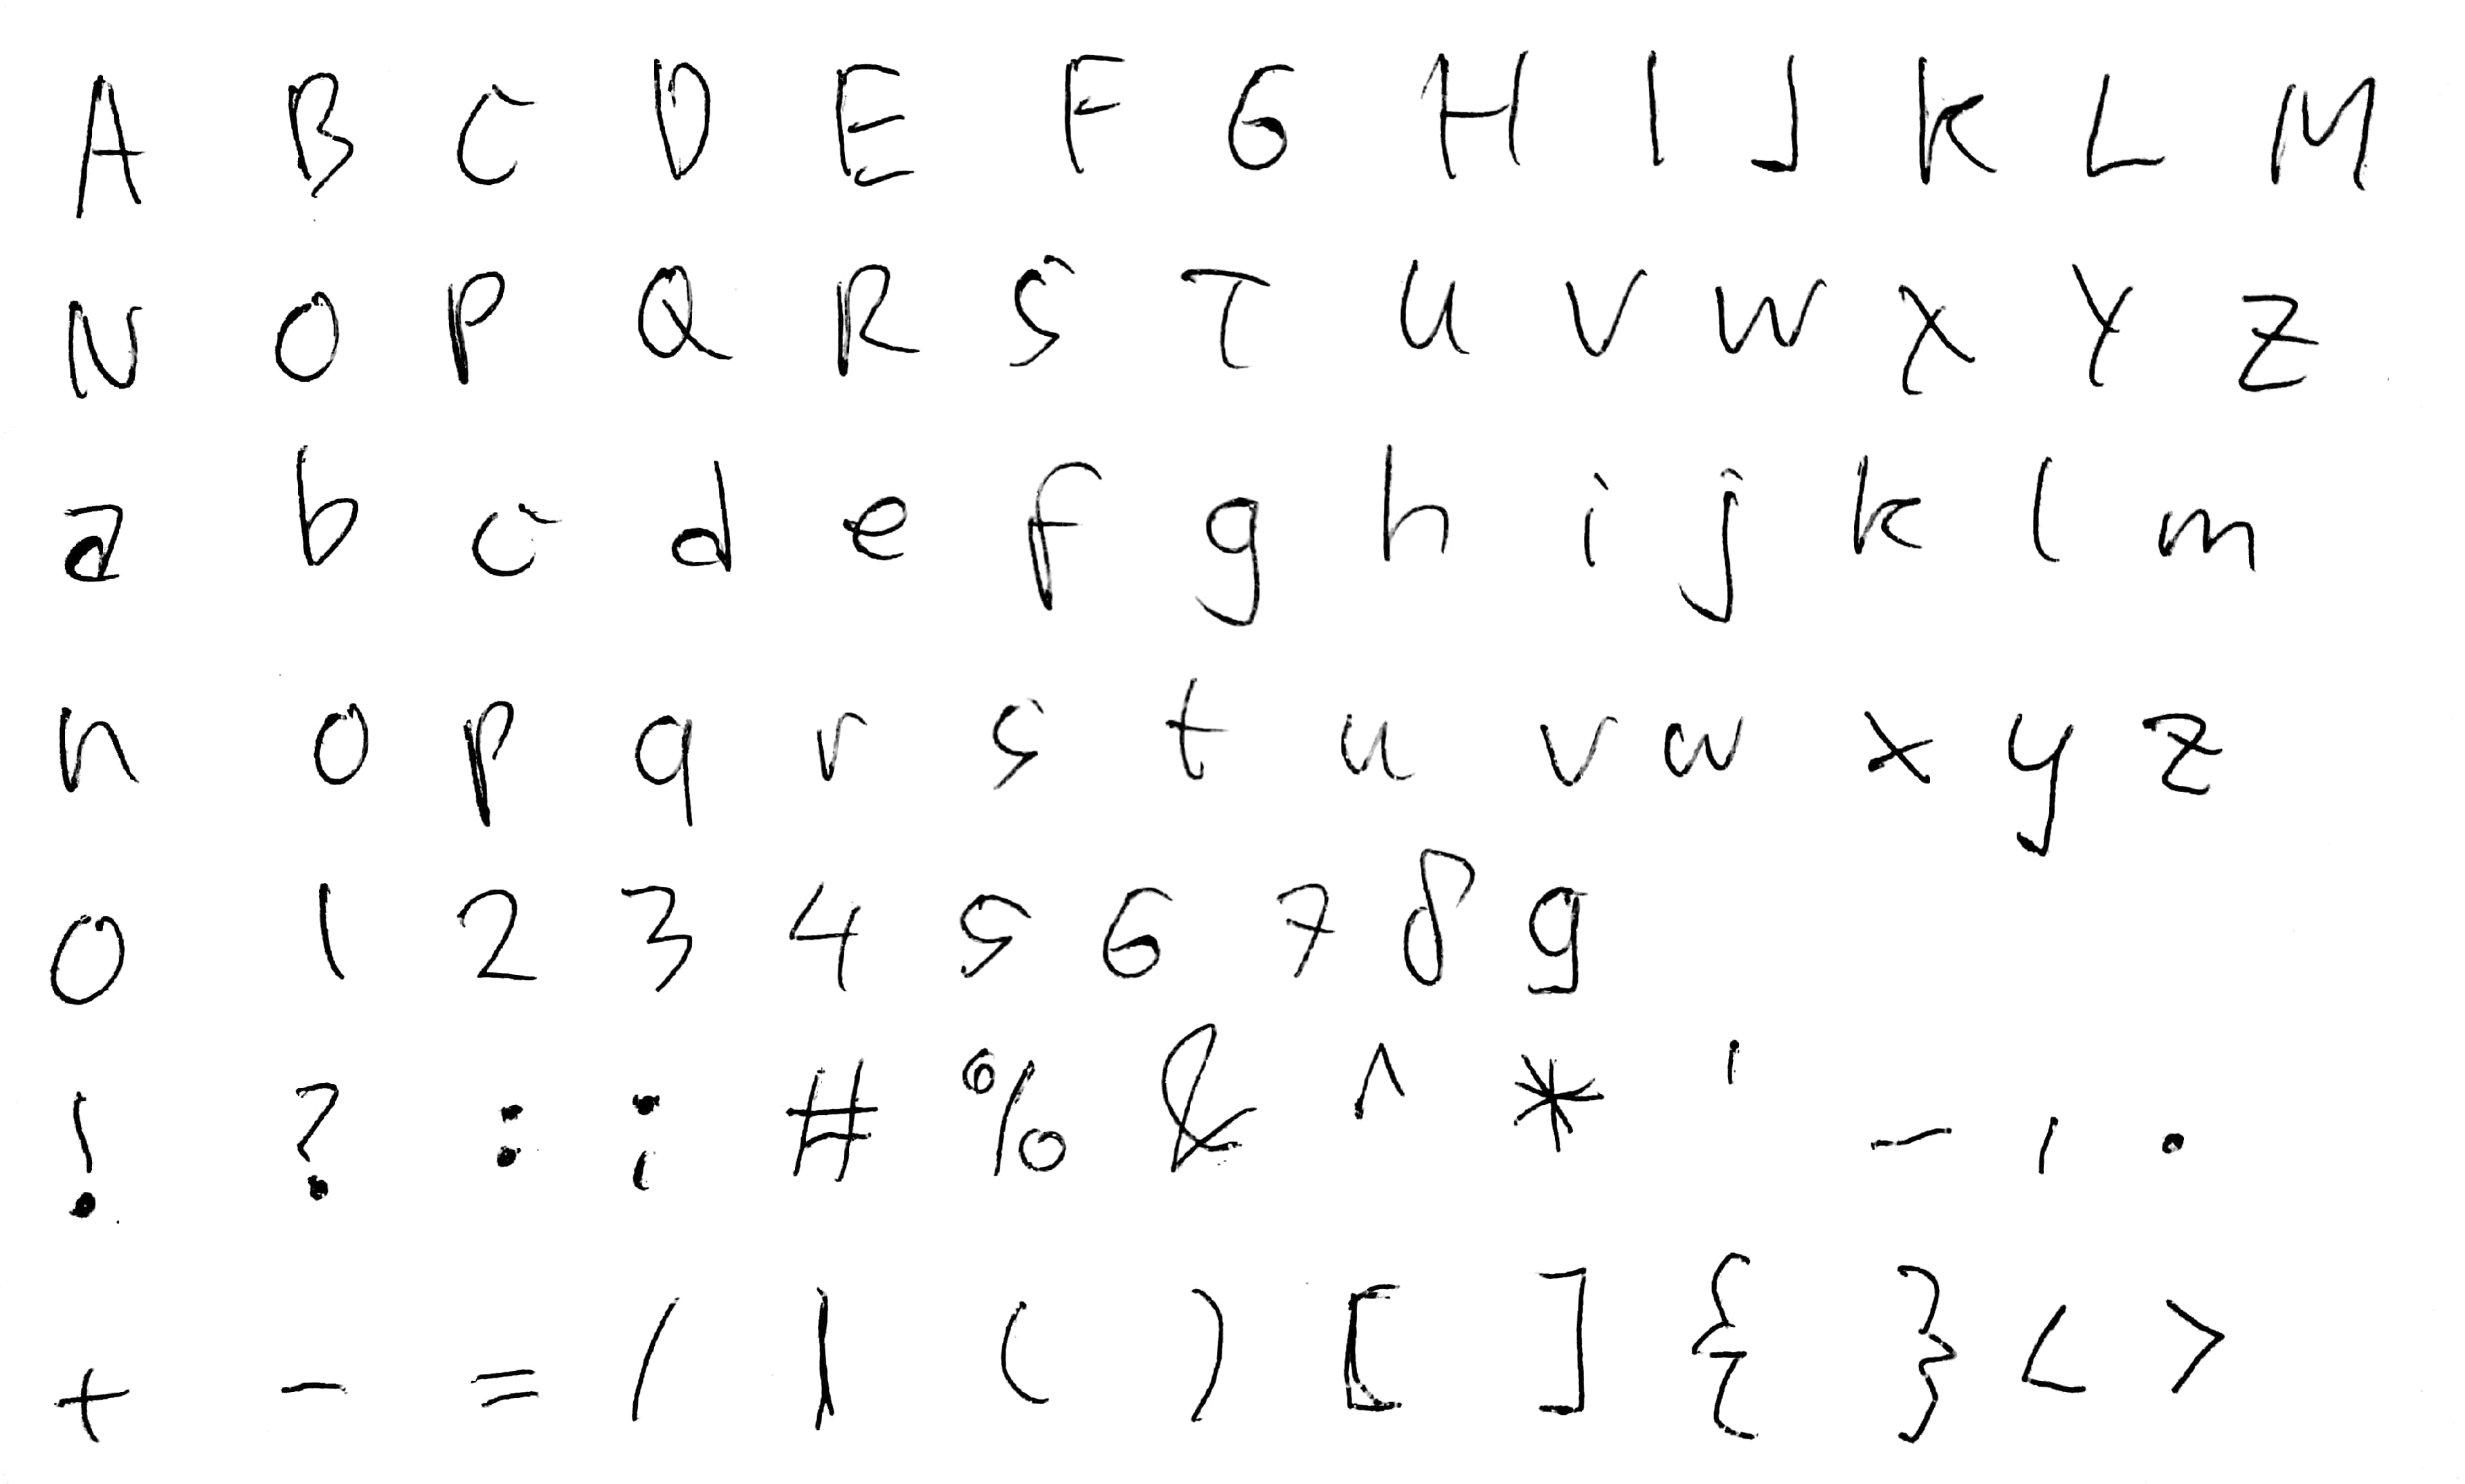 A B C D E F G H I J K L M
N O P Q R S T U V W X Y Z
a b c d e f g h i j k l m
n o p q r s t u v w x y z
0 1 2 3 4 5 6 7 8 9
! ? : ; # % & ^ * ' - , .
+ - = / | ( ) [ ] { } < >